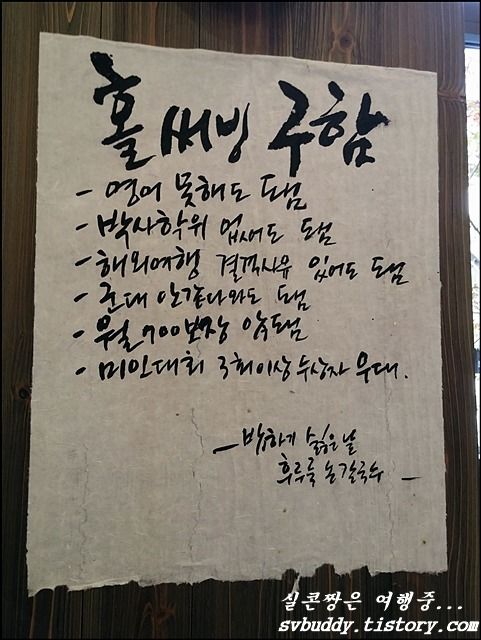 홀써빙 구함
- 영어 못해도 됨
- 박사학위 없어도 됨
- 해외여행 결격사유 있어도 됨
- 군대 안갔다와도 됨
- 월700보장 안됨
- 미인대회 3회이상 수상자 우대.
- 밥하기 싫은날
후루룩 손칼국수 -
실콘짱은 여행중...
svbuddy.tistory.com